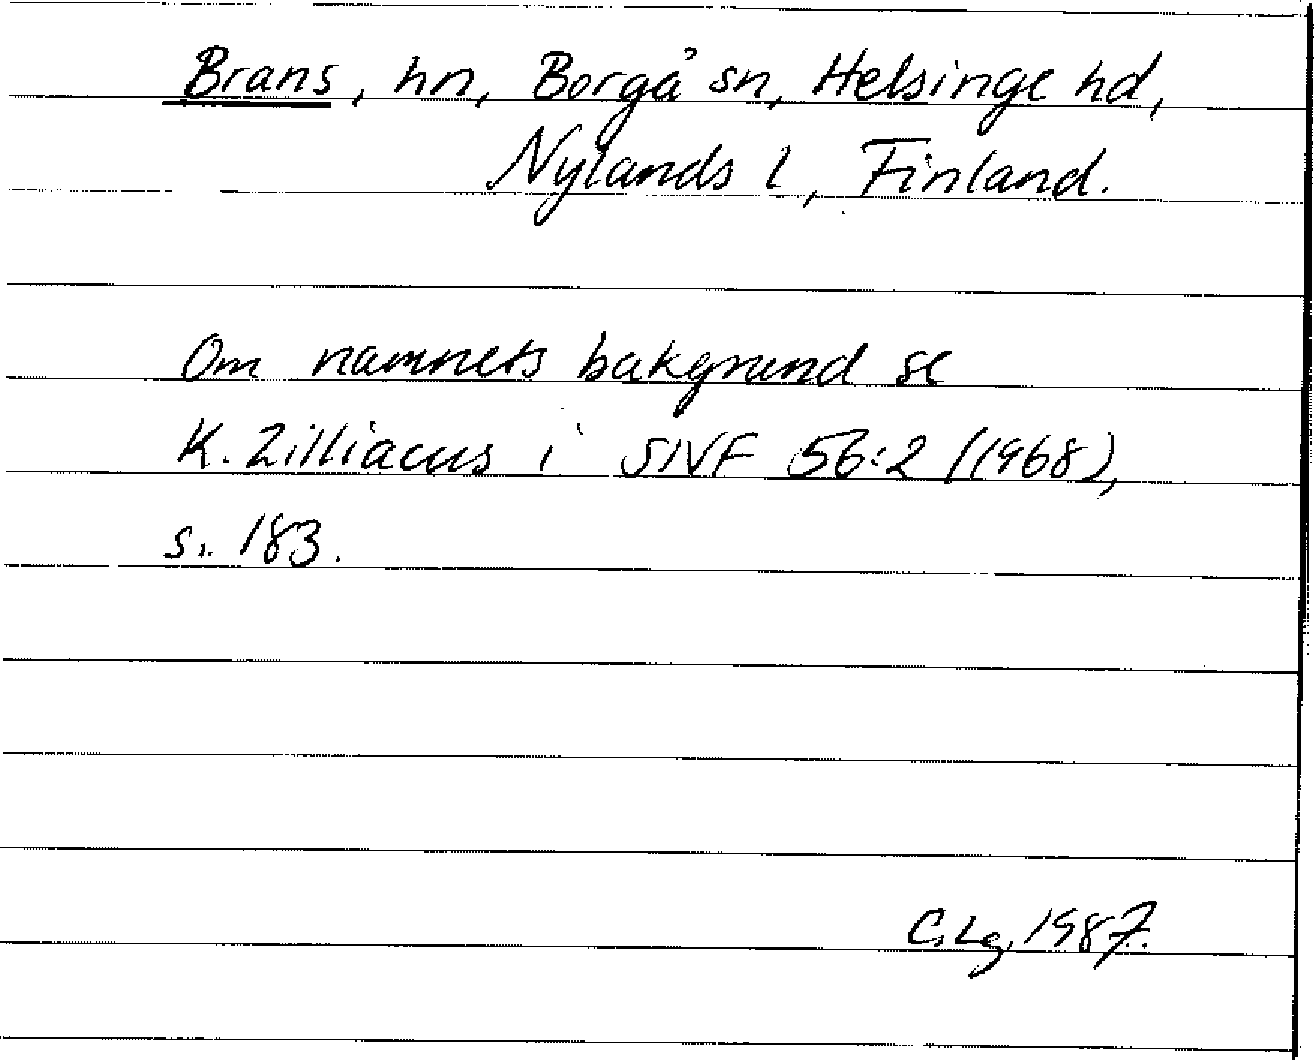 Brans, hn, Borgå sn, Helsinge hd,
Nylands l, Finland.
Om namnets bakgrund se
K. Zilliacus i SNF 56:2 (1968),
s. 183.
C. Lg, 1987.